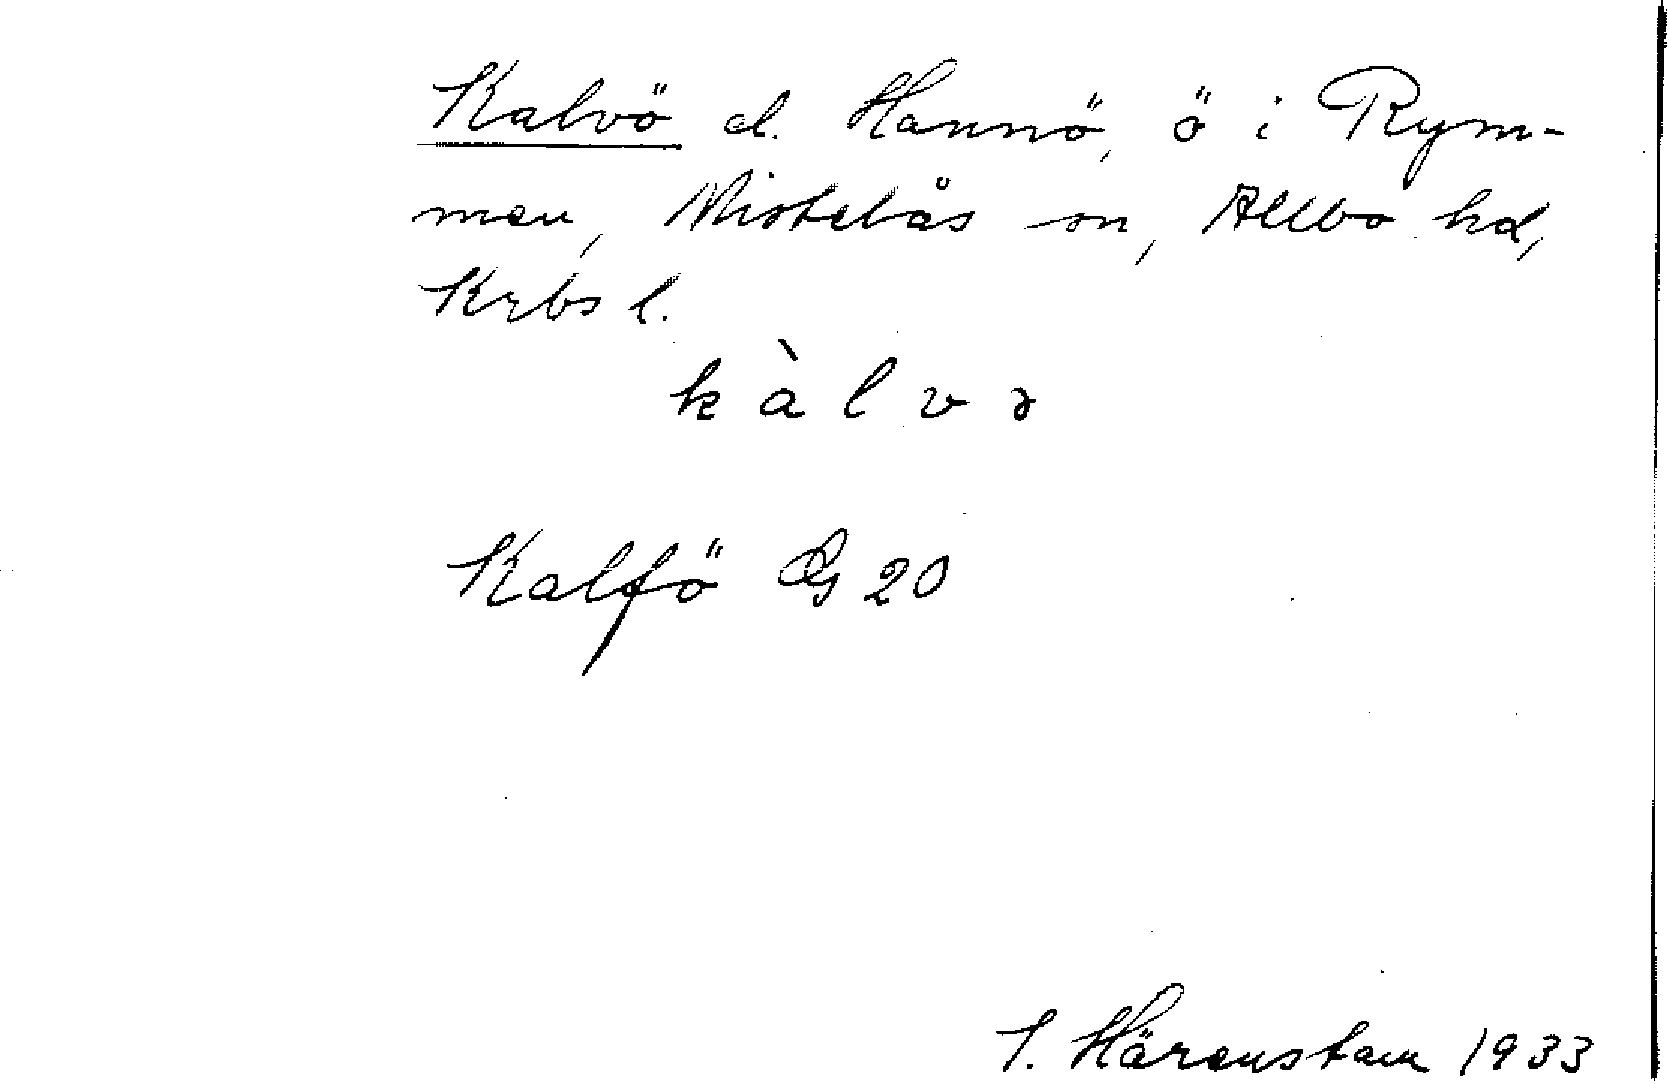 Kalvö el. Hannö, ö i Rym-
men, Mistelås sn, Allbo hd,
Krbs l.
kàlvə
Kalfö G 20
I. Härenstam 1933